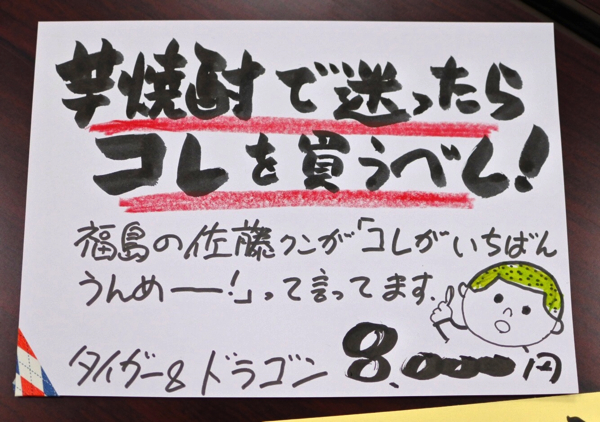 芋焼酎で迷ったら
コレを買うべし!
福島の佐藤クンが「コレがいちばん
うんめーー!」って言ってます.
タイガー&ドラゴン 8.000円